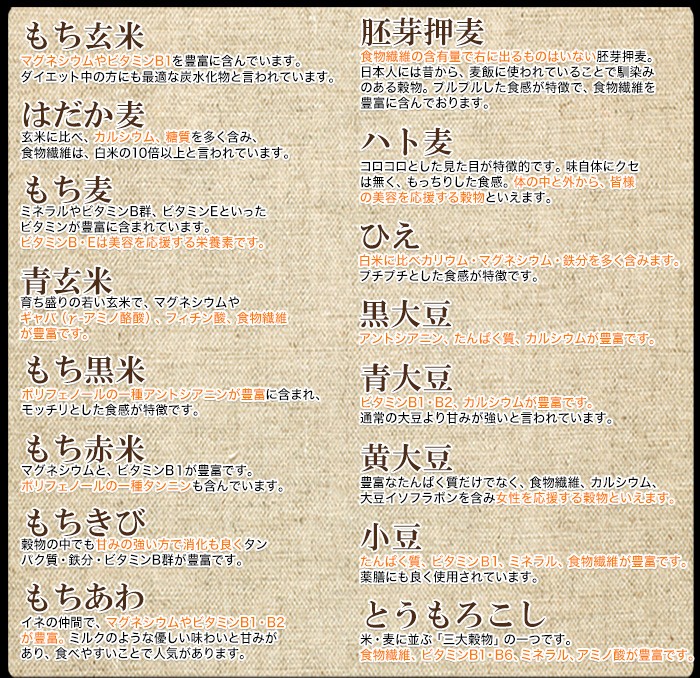 もち玄米
マグネシウムやビタミンB1を豊富に含んでいます。
ダイエット中の方にも最適な炭水化物と言われています。
はだか麦
玄米に比べ、カルシウム、糖質を多く含み、
食物繊維は、白米の10倍以上と言われています。
もち麦
ミネラルやビタミンB群、ビタミンEといった
ビタミンが豊富に含まれています。
ビタミンB・Eは美容を応援する栄養素です。
青玄米
育ち盛りの若い玄米で、マグネシウムや
ギャバ（γ-アミノ酪酸）、フィチン酸、食物繊維
が豊富です。
もち黒米
ポリフェノールの一種アントシアニンが豊富に含まれ、
モッチリとした食感が特徴です。
もち赤米
マグネシウムと、ビタミンB1が豊富です。
ポリフェノールの一種タンニンも含んでいます。
もちきび
穀物の中でも甘みの強い方で消化も良くタン
パク質・鉄分・ビタミンB群が豊富です。
もちあわ
イネの仲間で、マグネシウムやビタミンB1・B2
が豊富。ミルクのような優しい味わいと甘みが
あり、食べやすいことで人気があります。
胚芽押麦
食物繊維の含有量で右に出るものはいない胚芽押麦。
日本人には昔から、麦飯に使われていることで馴染み
のある穀物。プルプルした食感が特徴で、食物繊維を
豊富に含んでおります。
ハト麦
コロコロとした見た目が特徴的です。味自体にクセ
は無く、もっちりした食感。体の中と外から、皆様
の美容を応援する穀物といえます。
ひえ
白米に比べカリウム・マグネシウム・鉄分を多く含みます。
プチプチとした食感が特徴です。
黒大豆
アントシアニン、たんぱく質、カルシウムが豊富です。
青大豆
ビタミンB1・B2、カルシウムが豊富です。
通常の大豆より甘みが強いと言われています。
黄大豆
豊富なたんぱく質だけでなく、食物繊維、カルシウム、
大豆イソフラボンを含み女性を応援する穀物といえます。
小豆
たんぱく質、ビタミンB1、ミネラル、食物繊維が豊富です。
薬膳にも良く使用されています。
とうもろこし
米・麦に並ぶ「三大穀物」の一つです。
食物繊維、ビタミンB1・B6、ミネラル、アミノ酸が豊富です。